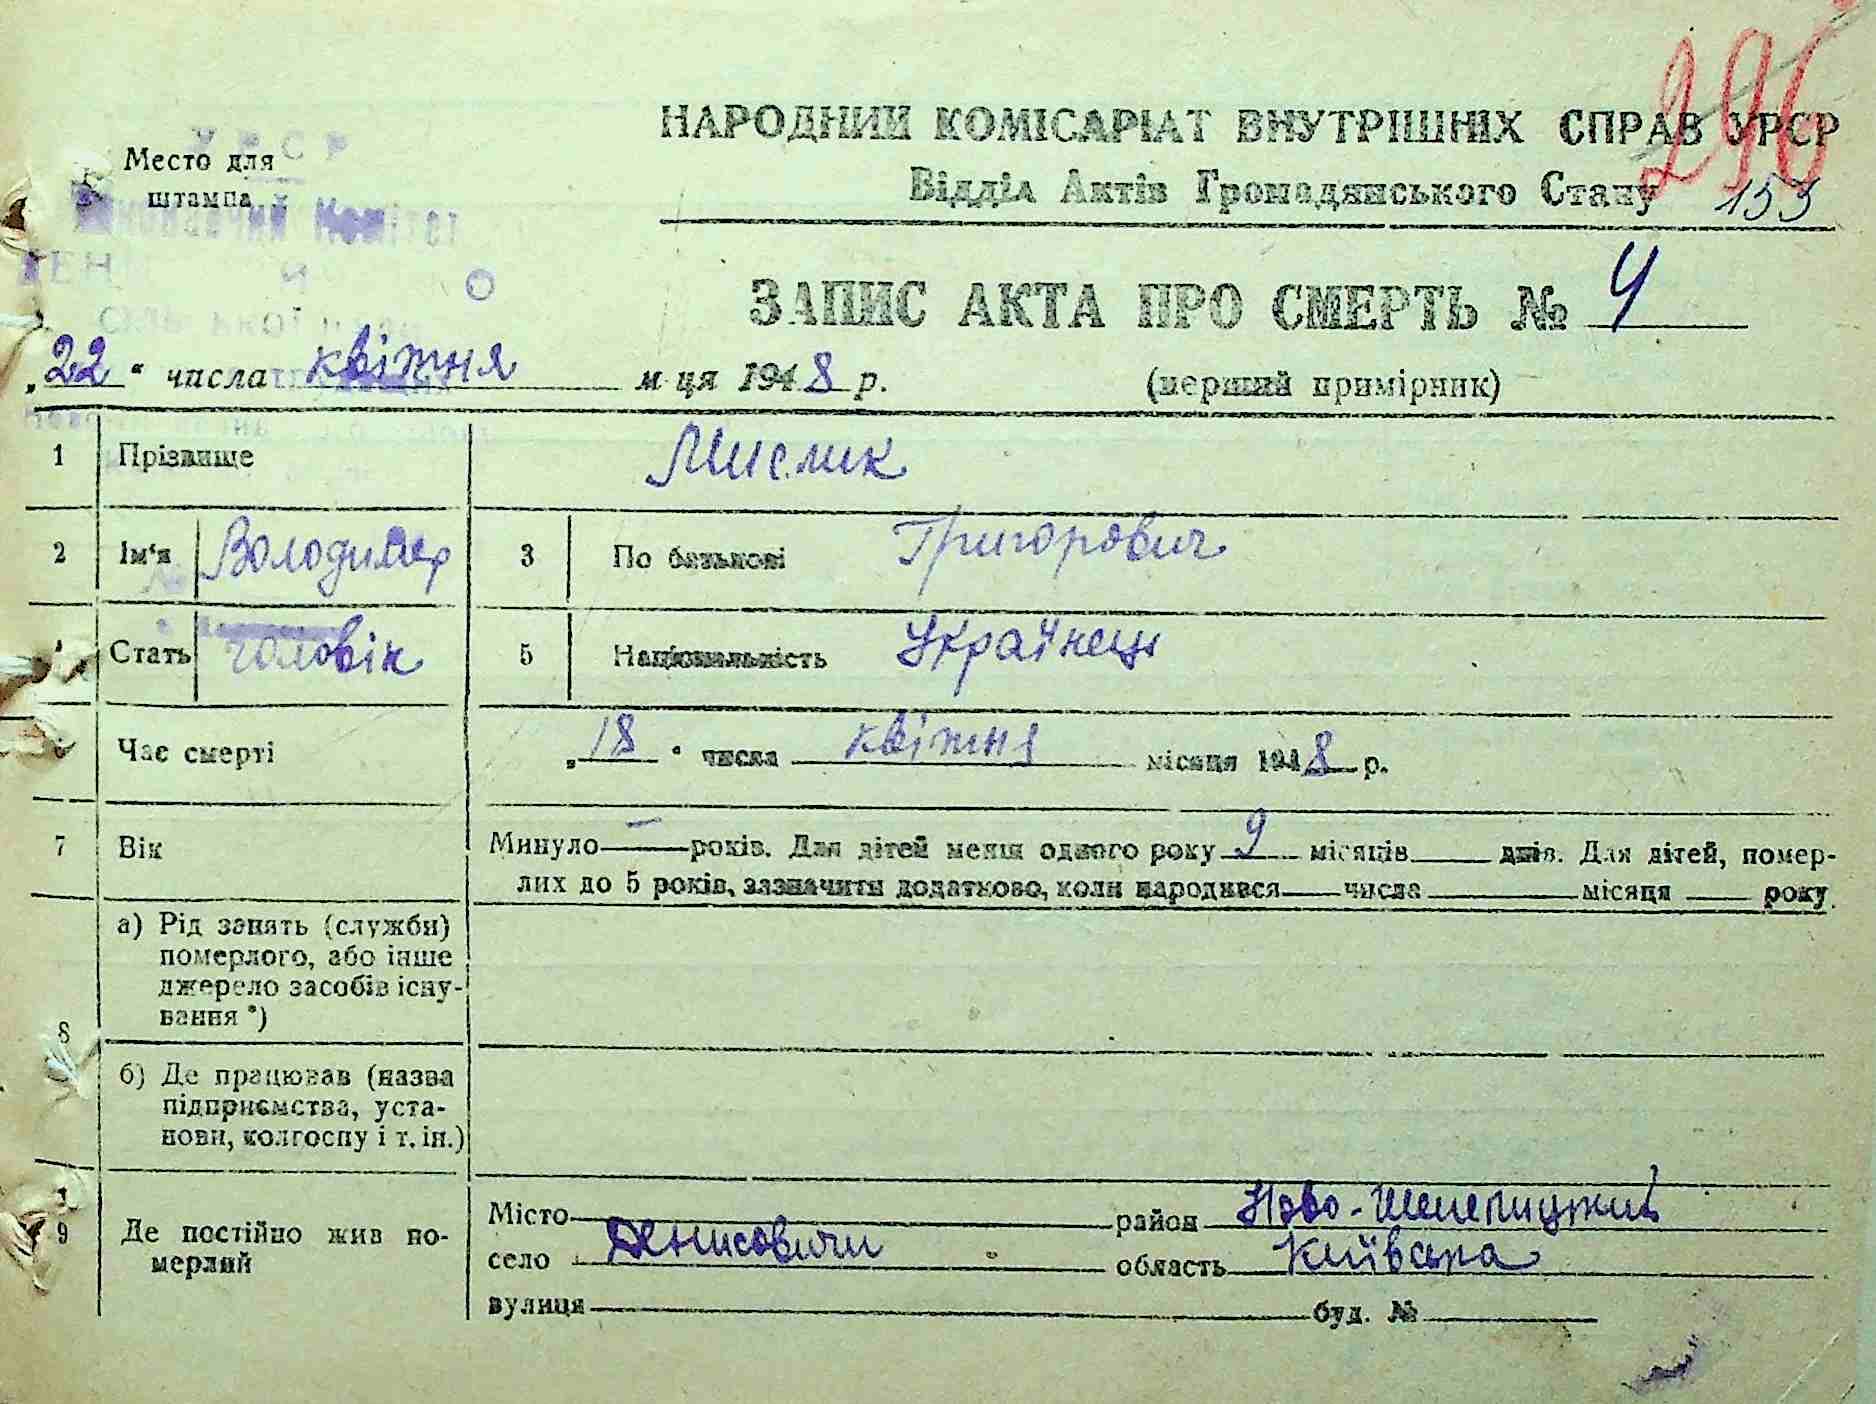 296
НАРОДНИЙ КОМІСАРІАТ ВНУТРІШНІХ СПРАВ УРСР
Место для
штампа
УРСР
Відділ Актів Громадянського Стану 153
Виконавчий Комітет
ЗАПИС АКТА ПРО СМЕРТЬ № 4
„22“ числа квітня м-ця 1948 р. (перший примірник)
1 Прізвище Мислик
2 Ім‘я Володимир 3 По батькові Григорович
Стать чоловік 5 Національність Українець
6 Час смерті „18“ числа квітня місяця 1948 р.
7 Вік Минуло — років. Для дітей менш одного року 9 місяців днів. Для дітей, помер-
лих до 5 років, зазначити додатково, коли народився числа місяця року
8 а) Рід занять (служби)
померлого, або інше
джерело засобів існу-
вання *)
б) Де працював (назва
підприємства, уста-
нови, колгоспу і т. ін.)
9 Де постійно жив по-
мерлий
Місто район Ново-Шепелицький
село Денисовичи область Київська
вулиця буд. №